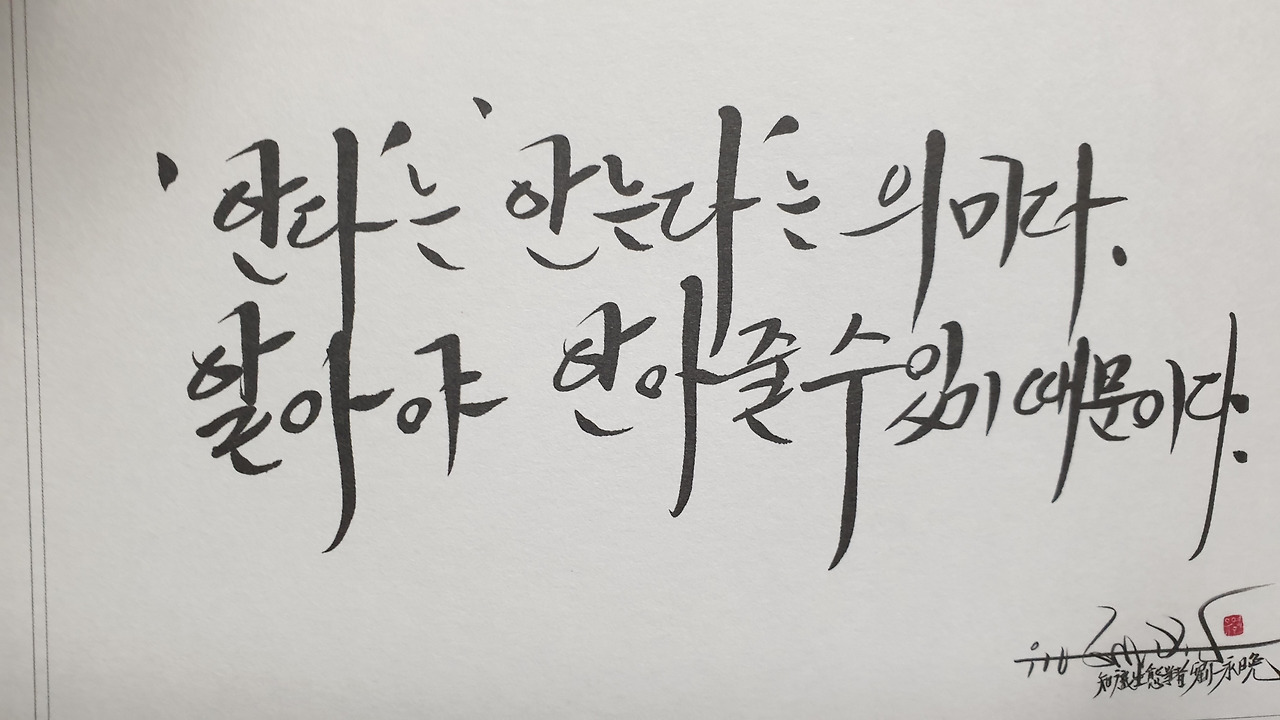 '안다'는 '안는다'는 의미다.
알아야 안아줄 수 있기 때문이다.
知識生態學者 劉永晩